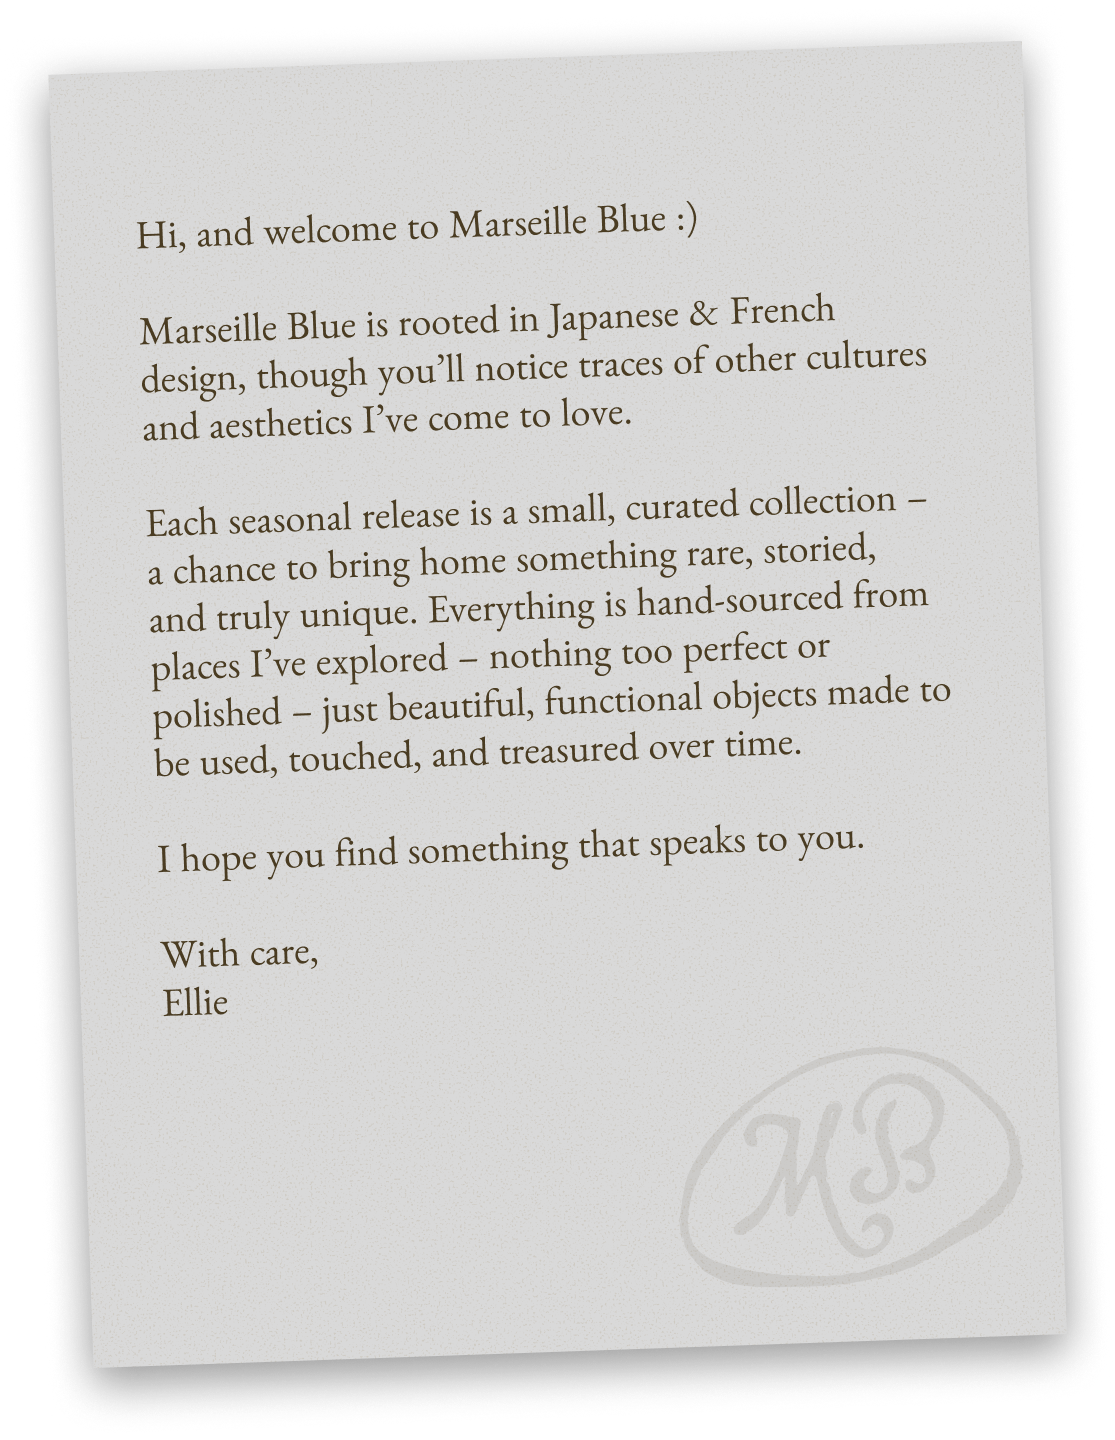 Hi, and welcome to Marseille Blue :)
Marseille Blue is rooted in Japanese & French
design, though you’ll notice traces of other cultures
and aesthetics I’ve come to love.
Each seasonal release is a small, curated collection –
a chance to bring home something rare, storied,
and truly unique. Everything is hand-sourced from
places I’ve explored – nothing too perfect or
polished – just beautiful, functional objects made to
be used, touched, and treasured over time.
I hope you find something that speaks to you.
With care,
Ellie
MB